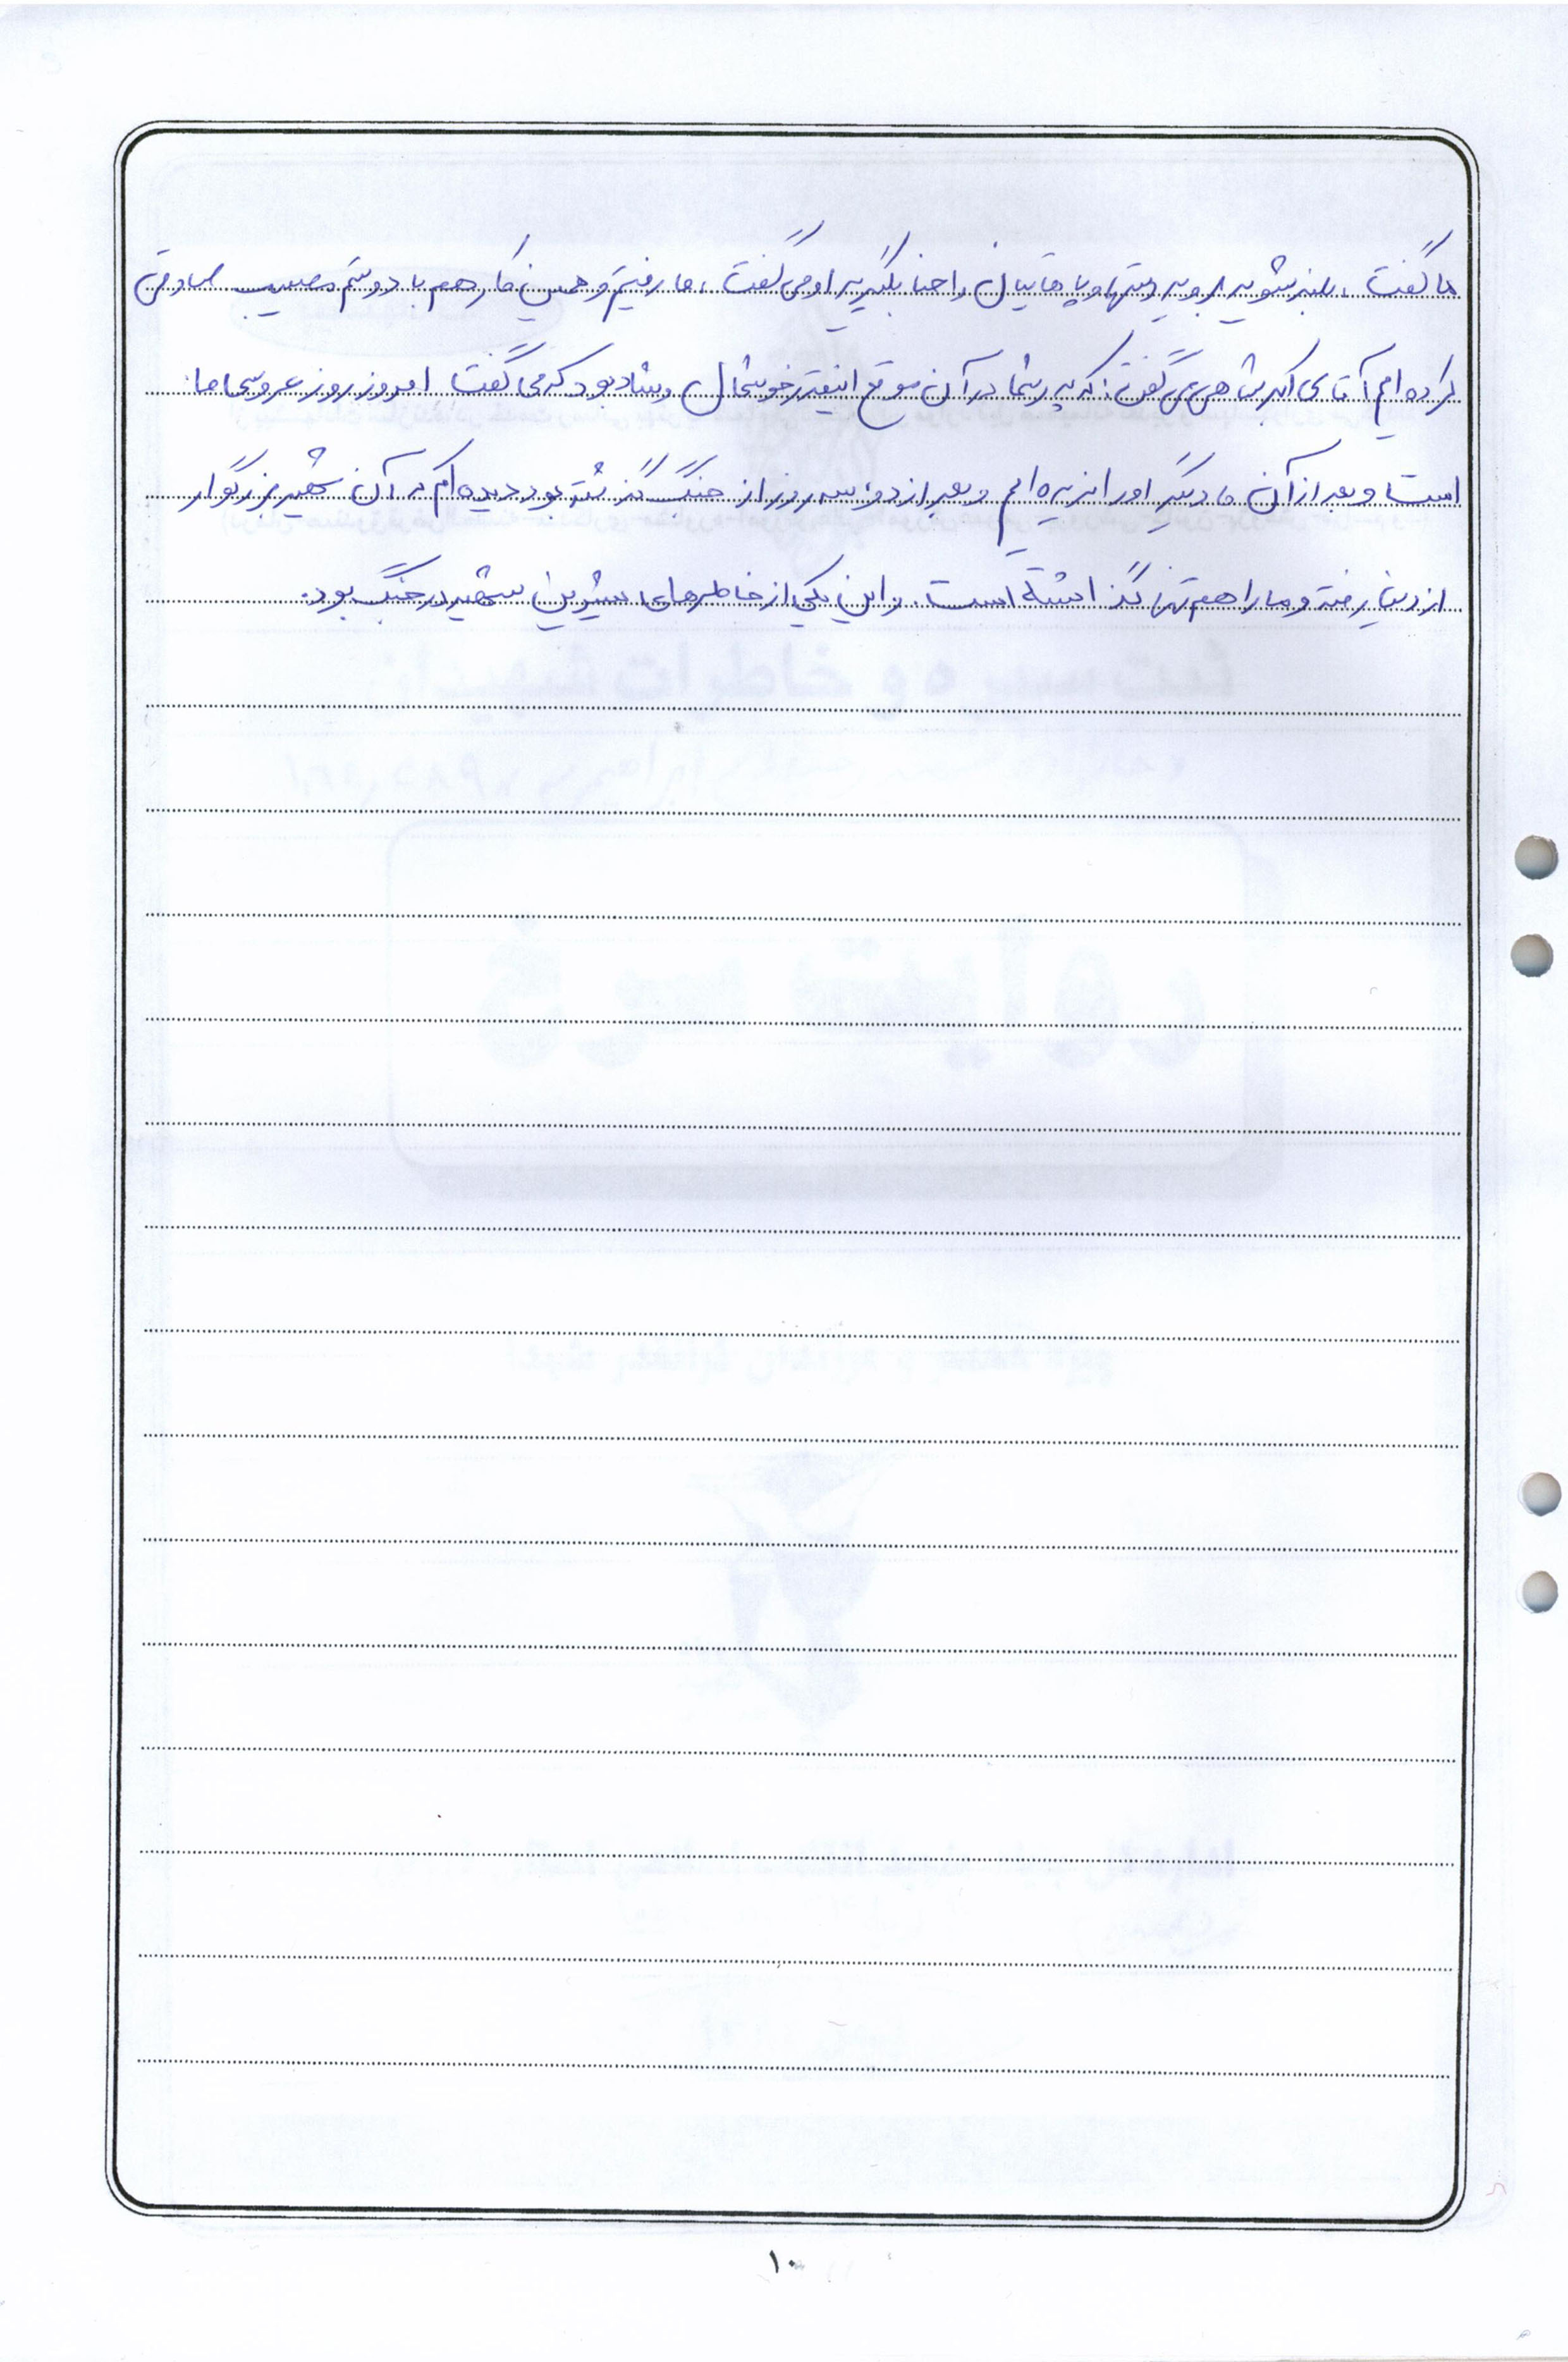 ما گفت ، بلند شوید بروید دستها و پاهایتان را حنا بگیرید او می گفت ، ما رفتیم و همین کار هم با دوستم مصیب صادقی
کرده ایم آقای اکبر شاهی می گفت : که پدر شما در آن موقع اینقدر خوشحال و شاد بود که می گفت امروز روز عروسی ما
است و بعد از آن ما دیگر او را ندیده ایم و بعد از دو، سه روز از جنگ گذشته بود دیده ام که آن شهید بزرگوار
از دین رفته و ما را هم تنها گذاشته است . و این یکی از خاطرهای شیرین شهید در جنگ بود .
۱۰